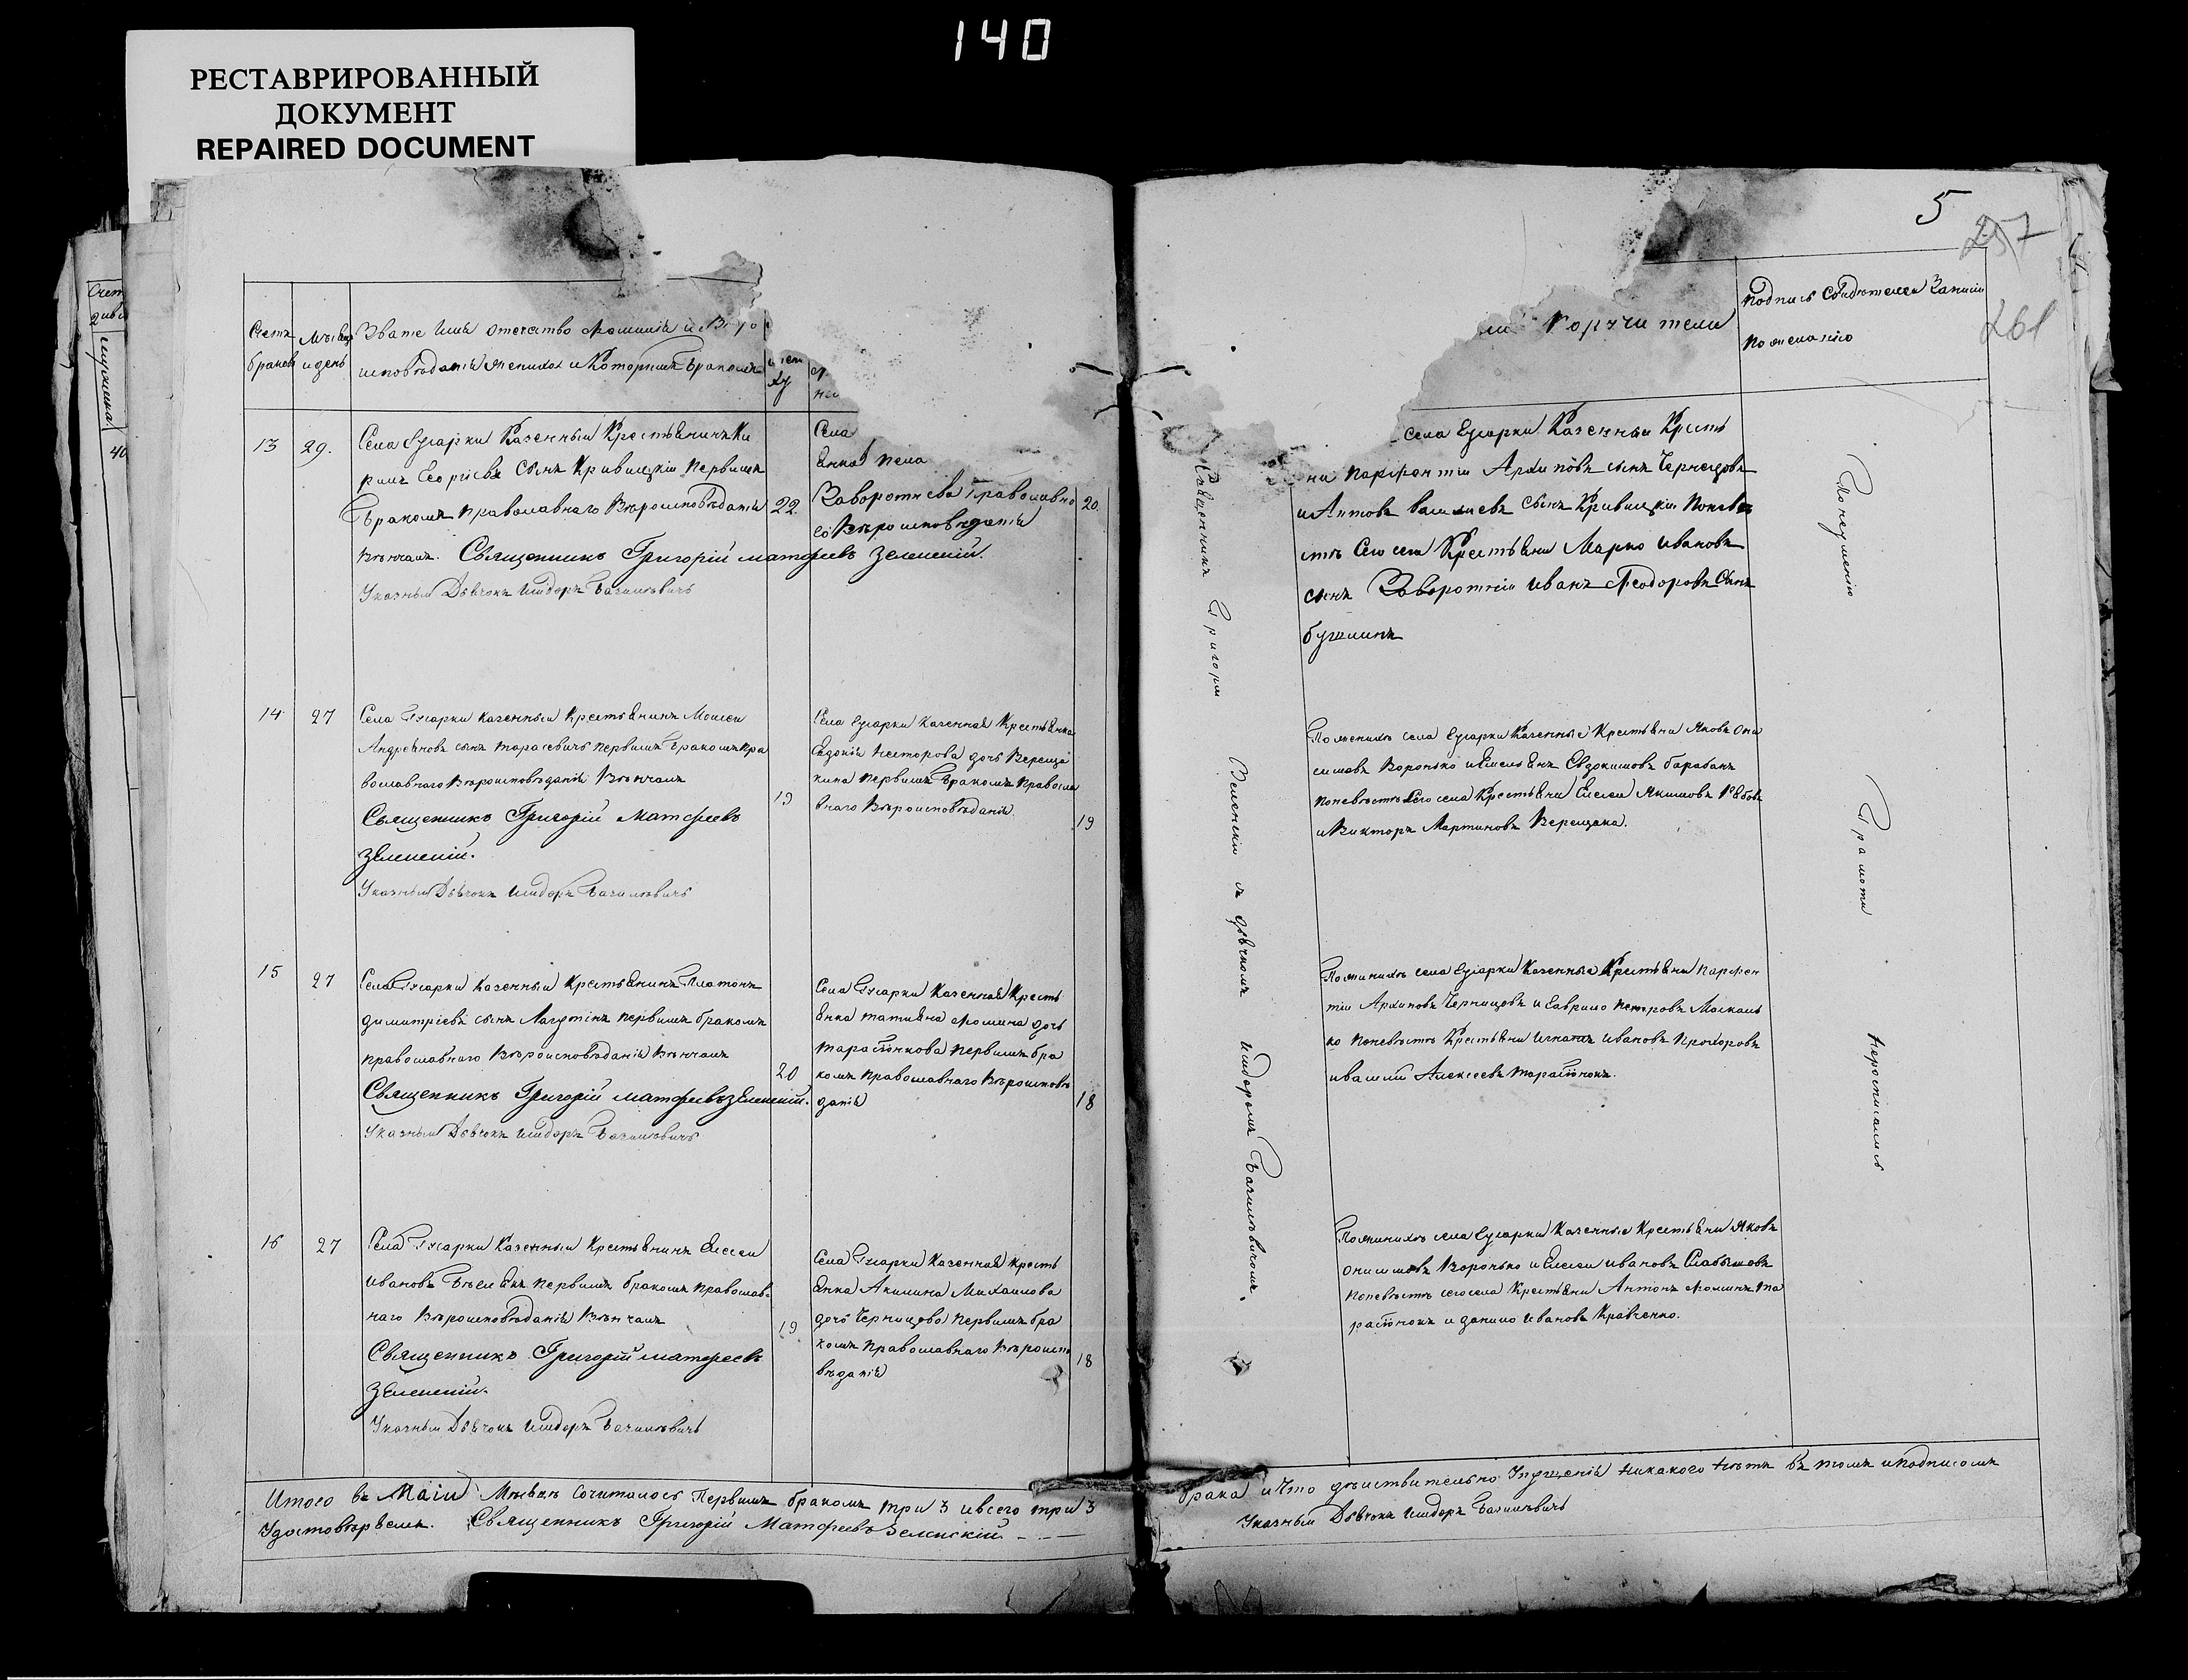 140
РЕСТАВРИРОВАННЫЙ
ДОКУМЕНТ
REPAIRED DOCUMENT
5
257
261
Счетъ браковъ
Мѣсяцъ и день
Званіе Имя отечество Фамилія и Вѣро
исповѣданія жениха и Которимъ Бракомъ
Поручители
Подпись свидѣтелей Записи
По желанію
13
29.
Села Бугарки Казенный Крестьянинъ Ки
рилъ Георгіевъ сынъ Кривицкій Первимъ
Бракомъ Православнаго Вѣроисповѣданія
Вѣнчалъ. Священникъ Григорій Матфеевъ Зеленскій.
Указный Дьячокъ Исидоръ Базилѣвичъ
22
Села
янка Пела
Заворотнева Православно
го Вѣроисповѣданія
20
села Бугарки Казенныи Кресть
яни Парфентіи Архиповъ сынъ Чернецовъ
и Антонъ Василиевъ сынъ Кривицкій Поневѣ
стѣ Сего села Крестьяни Марко Ивановъ
сынъ Заворотній Иванъ Феодоровъ Сынъ
14
27
Села Бугарки Казенный Крестьянинъ Моисей
Андреяновъ сынъ Тарасевичъ первимъ Бракомъ Пра
вославнаго Вѣроисповѣданія Вѣнчалъ
Священникъ Григорій Матфеевъ
Зеленскій.
Указный Дьячокъ Исидоръ Базилѣвичъ
19
Села Бугарки Казенная Крестьянка
Евдокія Несторова дочь Вереща
кина Первимъ Бракомъ Правосла
внаго Вѣроисповѣданія.
19
По женихѣ села Бугарки Казенные Крестьяни Яковъ Они
симовъ Воронько и Емельянъ Евдокимовъ Барабанъ
Поневѣстѣ Сего села Крестьяни Елисей Якимовъ
и Викторъ Мартиновъ Верещака.
15
27
Села Бугарки Казенный Крестьянинъ Платонъ
Димитріевъ сынъ Лагутинъ первимъ бракомъ
православнаго Вѣроисповѣданія Вѣнчалъ
Священникъ Григорій Матфеевъ Зеленскій.
Указный Дьячокъ Исидоръ Базилѣвичъ
20
Села Бугарки Казенная Кресть
янка Татияна Фомина дочь
Тарасюнкова Первимъ бра
комъ Православнаго Вѣроисповѣ
данія
18
По женихѣ села Бугарки Казенные Крестьяни Парфен
тій Архиповъ Чернецовъ и Гаврило Петровъ Москаль
ко Поневѣстѣ Крестьяни Игнатъ Ивановъ Прохоровъ
и Василій Алексеевъ Тарасюнокъ.
16
27
Села Бугарки Казенный Крестьянинъ Елисей
Ивановъ первимъ бракомъ Православ
наго Вѣроисповѣданія Вѣнчалъ
Священникъ Григорій Матфеевъ
Зеленскій.
Указный Дьячокъ Исидоръ Базилѣвичъ
19
Села Бугарки Казенная Кресть
янка Акилина Михаилова
дочь Чернецова Первимъ бра
комъ Православнаго Вѣроиспо
вѣданія
18
По женихѣ села Бугарки Казенные Крестьяни Яковъ
Онисимовъ Воронько и Елисей Ивановъ Слабышовъ
Поневѣстѣ сего села Крестьяни Антонъ Фоминъ Та
расюнокъ и Данило Ивановъ Кравченко.
Священникъ Григорій
Зеленскій с дьячкомъ Исидоромъ Базилѣвичомъ.
По неумению
Грамоти
неросписались
Итого въ Маіи Мѣсяцѣ Сочиталось Первимъ бракомъ три 3 и всего три 3
брака и Что дѣйствительно Упущенія никакого нѣтъ въ томъ и подписомъ
Удостовѣряемъ. Священникъ Григорій Матфеевъ Зеленскій
Указный Дьячокъ Исидоръ Базилѣвичъ